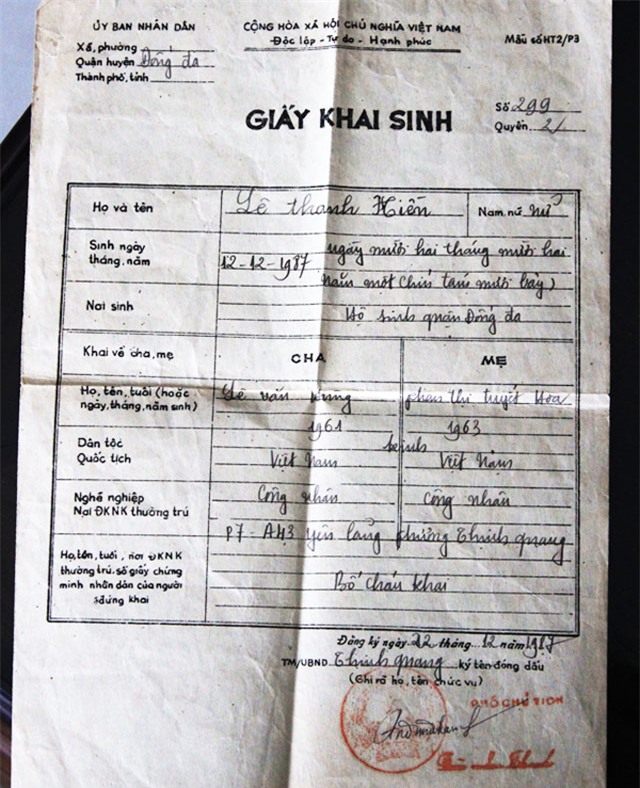 ỦY BAN NHÂN DÂN
CỘNG HÒA XÃ HỘI CHỦ NGHĨA VIỆT NAM
Độc lập - Tự do - Hạnh phúc
Mẫu số HT2/P3
Xã, phường
Quận huyện Đống đa
Thành phố, tỉnh
GIẤY KHAI SINH
Số 299
Quyển 2/
Họ và tên Lê thanh Hiền Nam nữ nữ
Sinh ngày tháng, năm 12-12-1987 ngày mười hai tháng mười hai
năm một chín tám mười bảy)
Nơi sinh Hộ sinh quận Đống đa
Khai về cha, mẹ CHA MẸ
Họ, tên, tuổi (hoặc ngày, tháng, năm sinh) Lê văn phan thị tuyết Hoa
1961 1963
Dân tộc kinh
Quốc tịch Việt Nam Việt Nam
Nghề nghiệp Công nhân công nhân
Nơi ĐKNK thường trú
P7 - A43 yên lãng phường Thịnh quang
Họ, tên, tuổi, nơi ĐKNK
thường trú, số giấy chứng
minh nhân dân của người
đứng khai
Bố cháu khai
Đăng ký ngày 22 tháng 12 năm 1987
TM/UBND Thịnh quang ký tên đóng dấu
(Ghi rõ họ, tên chức vụ)
PHÓ CHỦ TỊCH